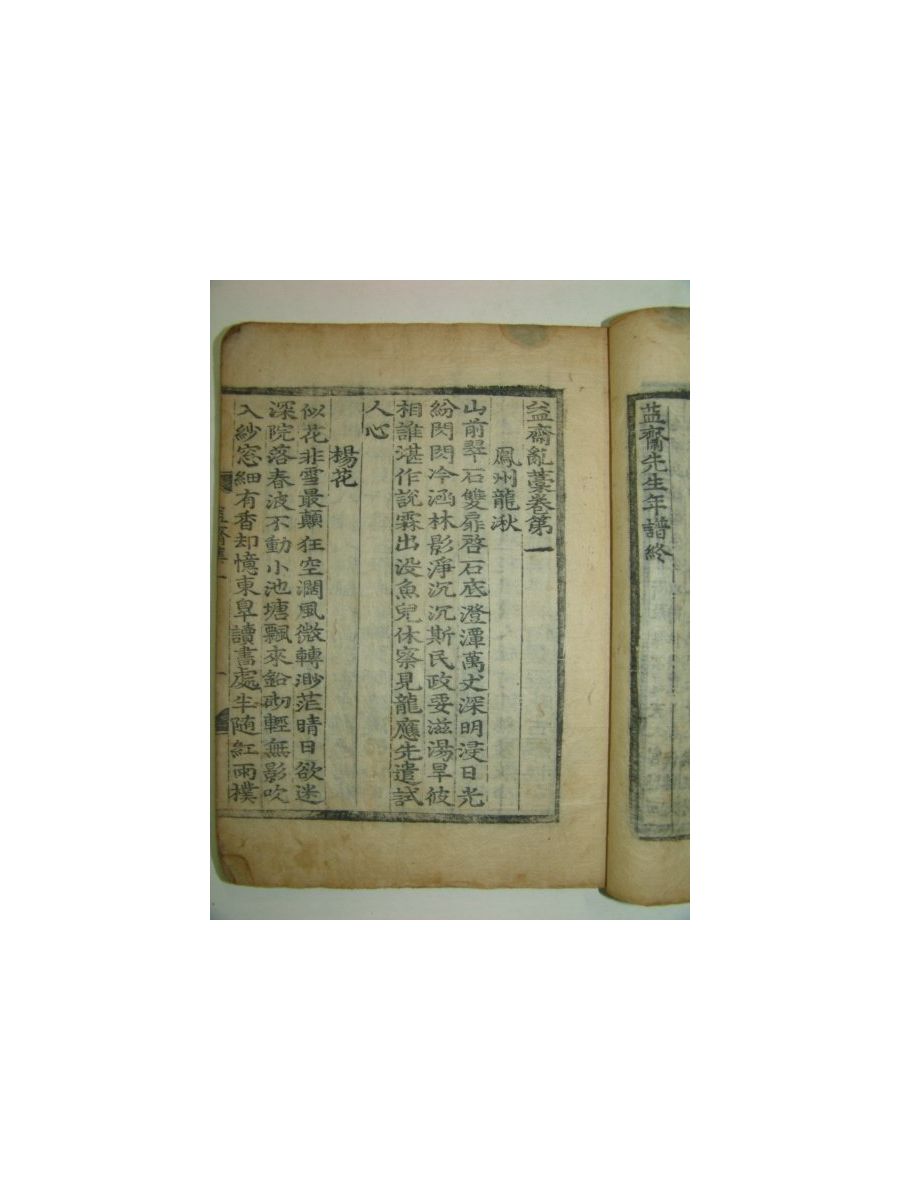 益齋先生年譜終
益齋亂藁卷第一
鳳州龍湫
山前翠石雙扉啓石底澄潭萬丈深明浸日光
紛閃閃冷涵林影淨沉沉斯民政要滋湯旱彼
相誰湛作說霖出没魚兒休察見龍應先遣試
人心
楊花
似花非雪最顛狂空濶風微轉渺茫晴日欲迷
深院落春波不動小池塘飄來鉛砌輕無影吹
入紗窓細有香却憶東皐讀書處半随紅雨撲